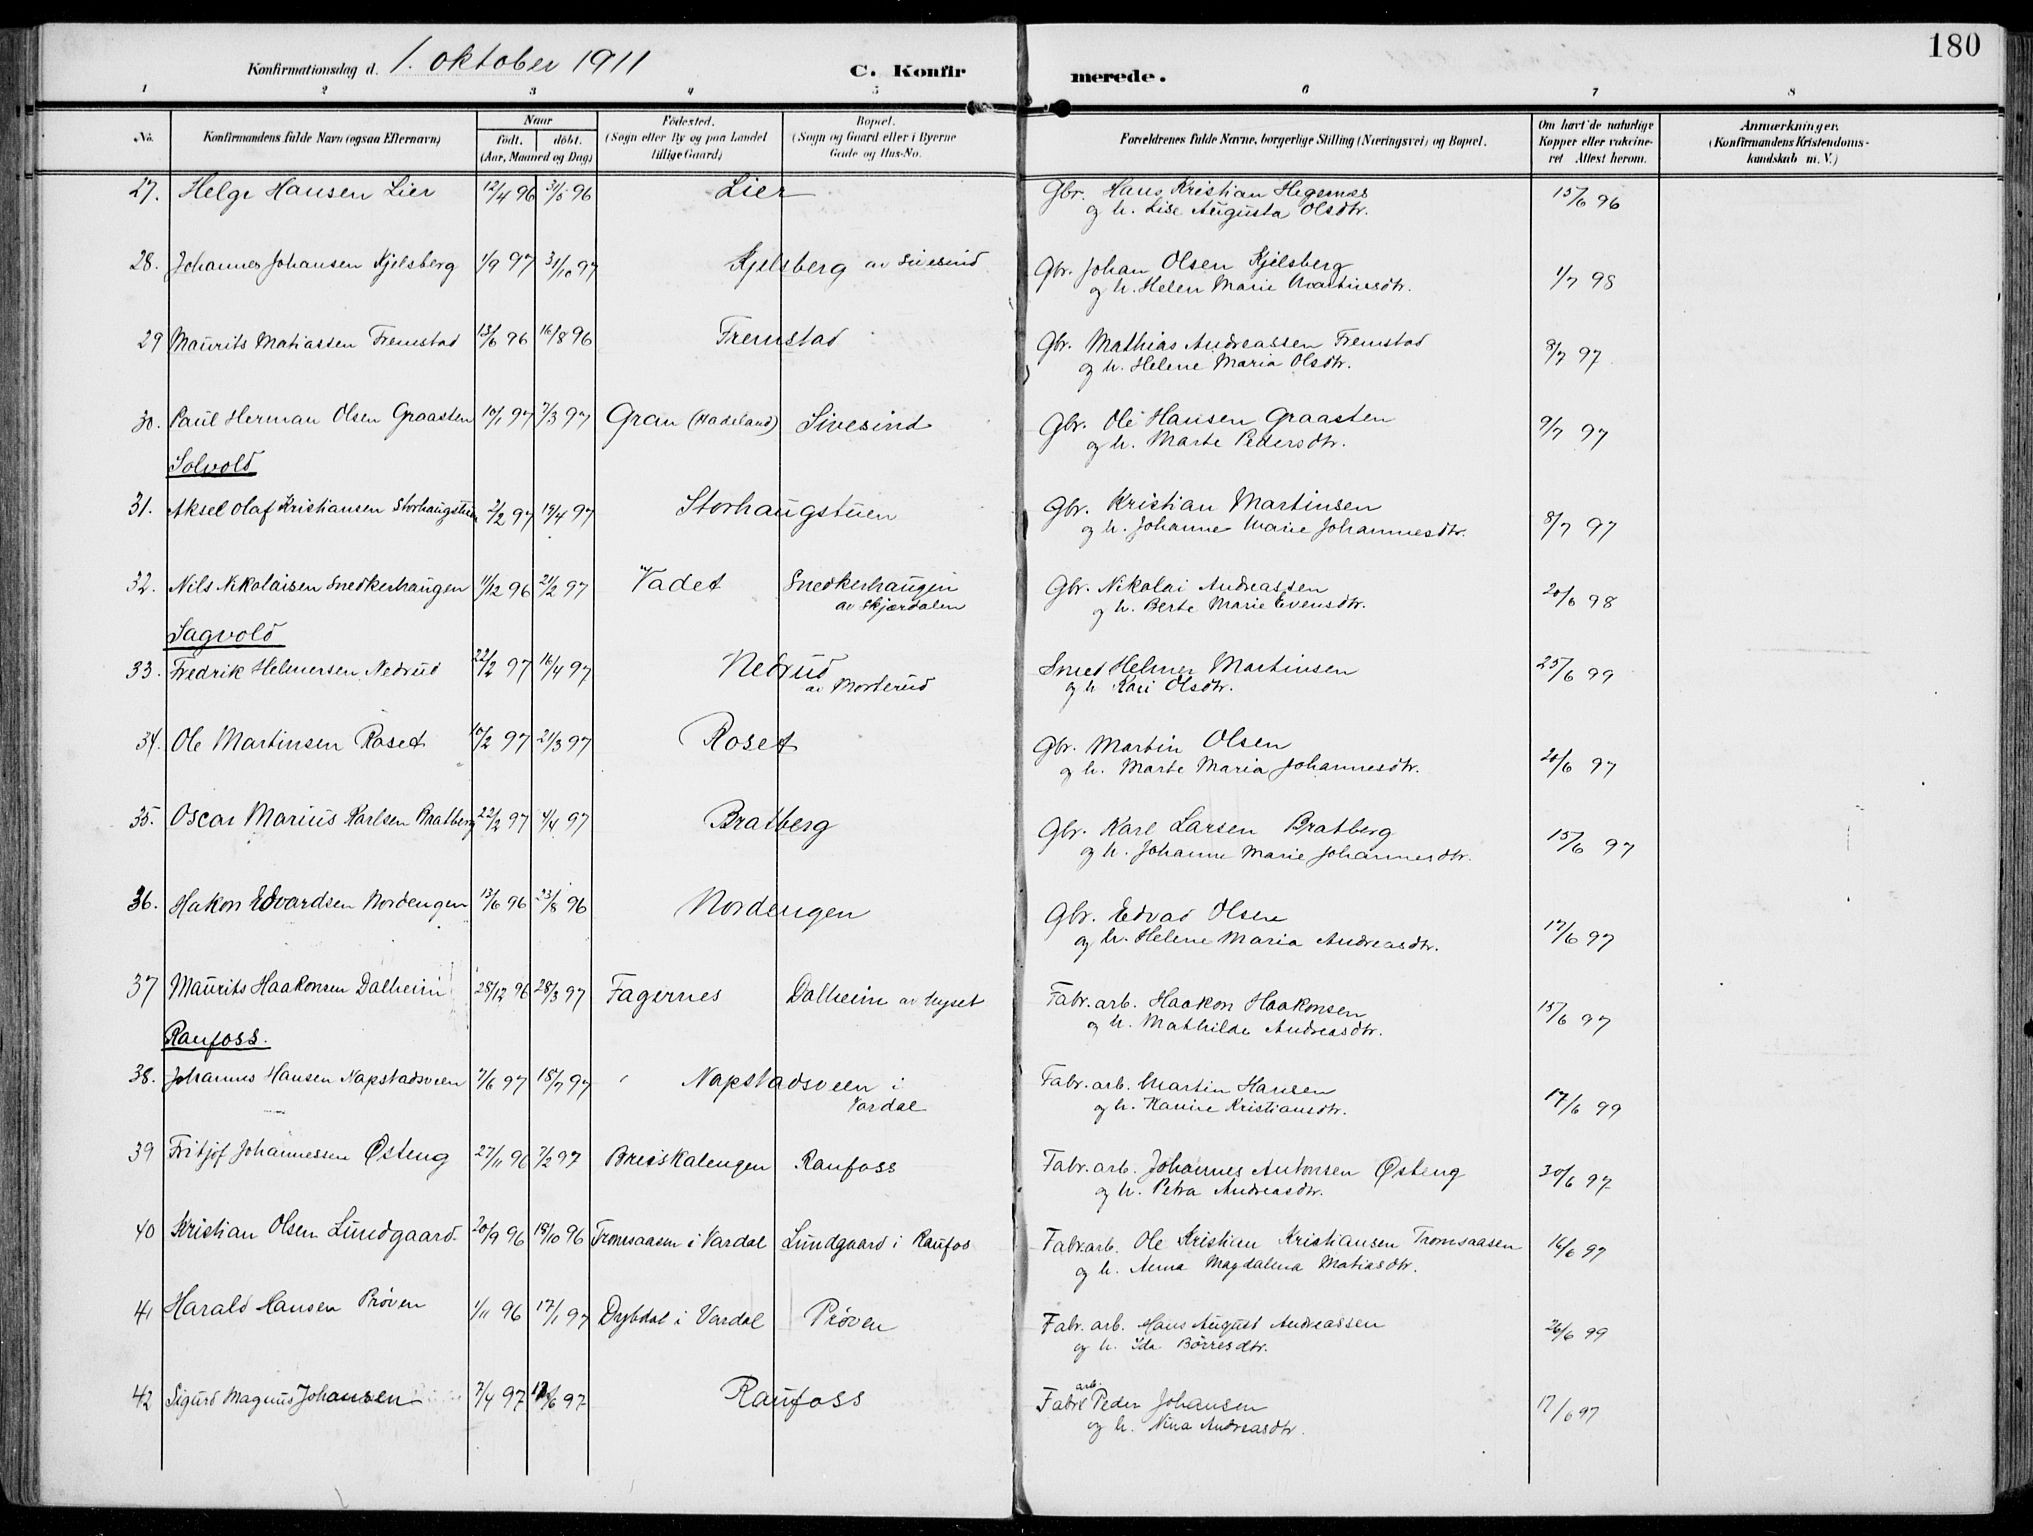 180
Konfirmationsdag d. 1. oktober 1911 C. Konfir merede.
1 2 3 4 5 6 7 8
No. Konfirmandens fulde Navn (ogsaa Efternavn) Naar født. døbt. (Aar, Maaned og Dag) Fødested. (Sogn eller By og paa Landet tillige Gaard) Bopæl. (Sogn og Gaard eller i Byerne Gade og Hus-No. Forældrenes fulde Navne, borgerlige Stilling (Næringsvei) og Bopæl. Om havt de naturlige Kopper eller vakcineret. Attest herom. Anmærkninger. (Konfirmandens Kristendomskundskab m. V.)
27. Helge Hansen Lier 12/4 96 31/5 96 Lier Gbr. Hans Kristian Hegernæs 15/6 96
og h. Lise Augusta Olsdtr.
28. Johannes Johansen Kjelsberg 1/9 97 31/10 97 Kjelsberg av Sivesind Gbr. Johan Olsen Kjelsberg 1/7 98
og h. Helen Marie Martinsdtr.
29 Maurits Matiassen Fremstad 13/6 96 16/8 96 Fremstad Gbr. Mathias Andreassen Fremstad 8/7 97
og h. Helene Maria Olsdtr.
30. Paul Herman Olsen Graasten 10/1 97 7/3 97 Gran (Hadeland) Sivesind Gbr. Ole Hansen Graasten 9/7 97
og h. Marte Pedersdtr.
Solvold
31. Aksel Olaf Kristiansen Storhaugstuen 2/2 97 19/4 97 Storhaugstuen Gbr. Kristian Martinsen 8/7 97
og h. Johanne Marie Johannesdtr.
32. Nils Nikolaisen Snedkerhaugen 11/12 96 21/2 97 Vadet Snedkerhaugen Gbr. Nikolai Andreassen 20/6 98
av Skjærdalen og h. Berte Marie Evensdtr.
Sagvold
33. Fredrik Helmersen Nedrud 22/2 97 16/4 97 Nedrud Smed Helmer Martinsen 25/6 99
av Morterud og h Kari Olsdtr.
34. Ole Martinsen Roset 10/2 97 21/3 97 Roset Gbr. Martin Olsen 20/6 97
og h. Marte Maria Johannesdtr.
35. Oscar Marius Karlsen Bratberg 22/2 97 4/4 97 Bratberg Gbr. Karl Larsen Bratberg 15/6 97
og h. Johanne Marie Johannesdtr.
36. Hakon Edvardsen Nordengen 13/6 96 23/8 96 Nordengen Gbr. Edvad Olsen 17/6 97
og h. Helene Maria Andreasdtr.
37 Maurits Haakonsen Dalheim 28/12 96 28/3 97 Fagernes Dalheim av Nyset Fabr. arb. Haakon Haakonsen 15/6 97
og h. Mathilde Andreasdtr.
Raufoss.
38. Johannes Hansen Napstadsveen 7/6 97 18/7 97 Napstadsveen i Fabr. arb. Martin Hansen 17/6 99
Vardal og h. Karine Kristiansdtr.
39 Fritjof Johannessen Østeng 27/11 96 7/2 97 Breiskalengen Raufoss Fabr. arb. Johannes Antonsen Østeng 30/6 97
og h. Petra Andreasdtr.
40 Kristian Olsen Lundgaard 20/9 96 18/10 96 Tromsaasen i Vardal Lundgaard i Raufos Fabr. arb. Ole Kristian Kristiansen Tromsaasen 16/6 97
og h. Anna Magdalena Matiasdtr.
41 Harald Hansen Prøven 1/11 96 17/1 97 Drybdal i Vardal Prøven Fabr. arb. Hans August Andreassen 26/6 99
og h. Ida Børresdtr.
42 Sigurd Magnus Johansen 7/4 97 /6 97 Raufoss Fabr. arb. Peder Johansen 17/6 97
og h. Nina Andreasdtr.